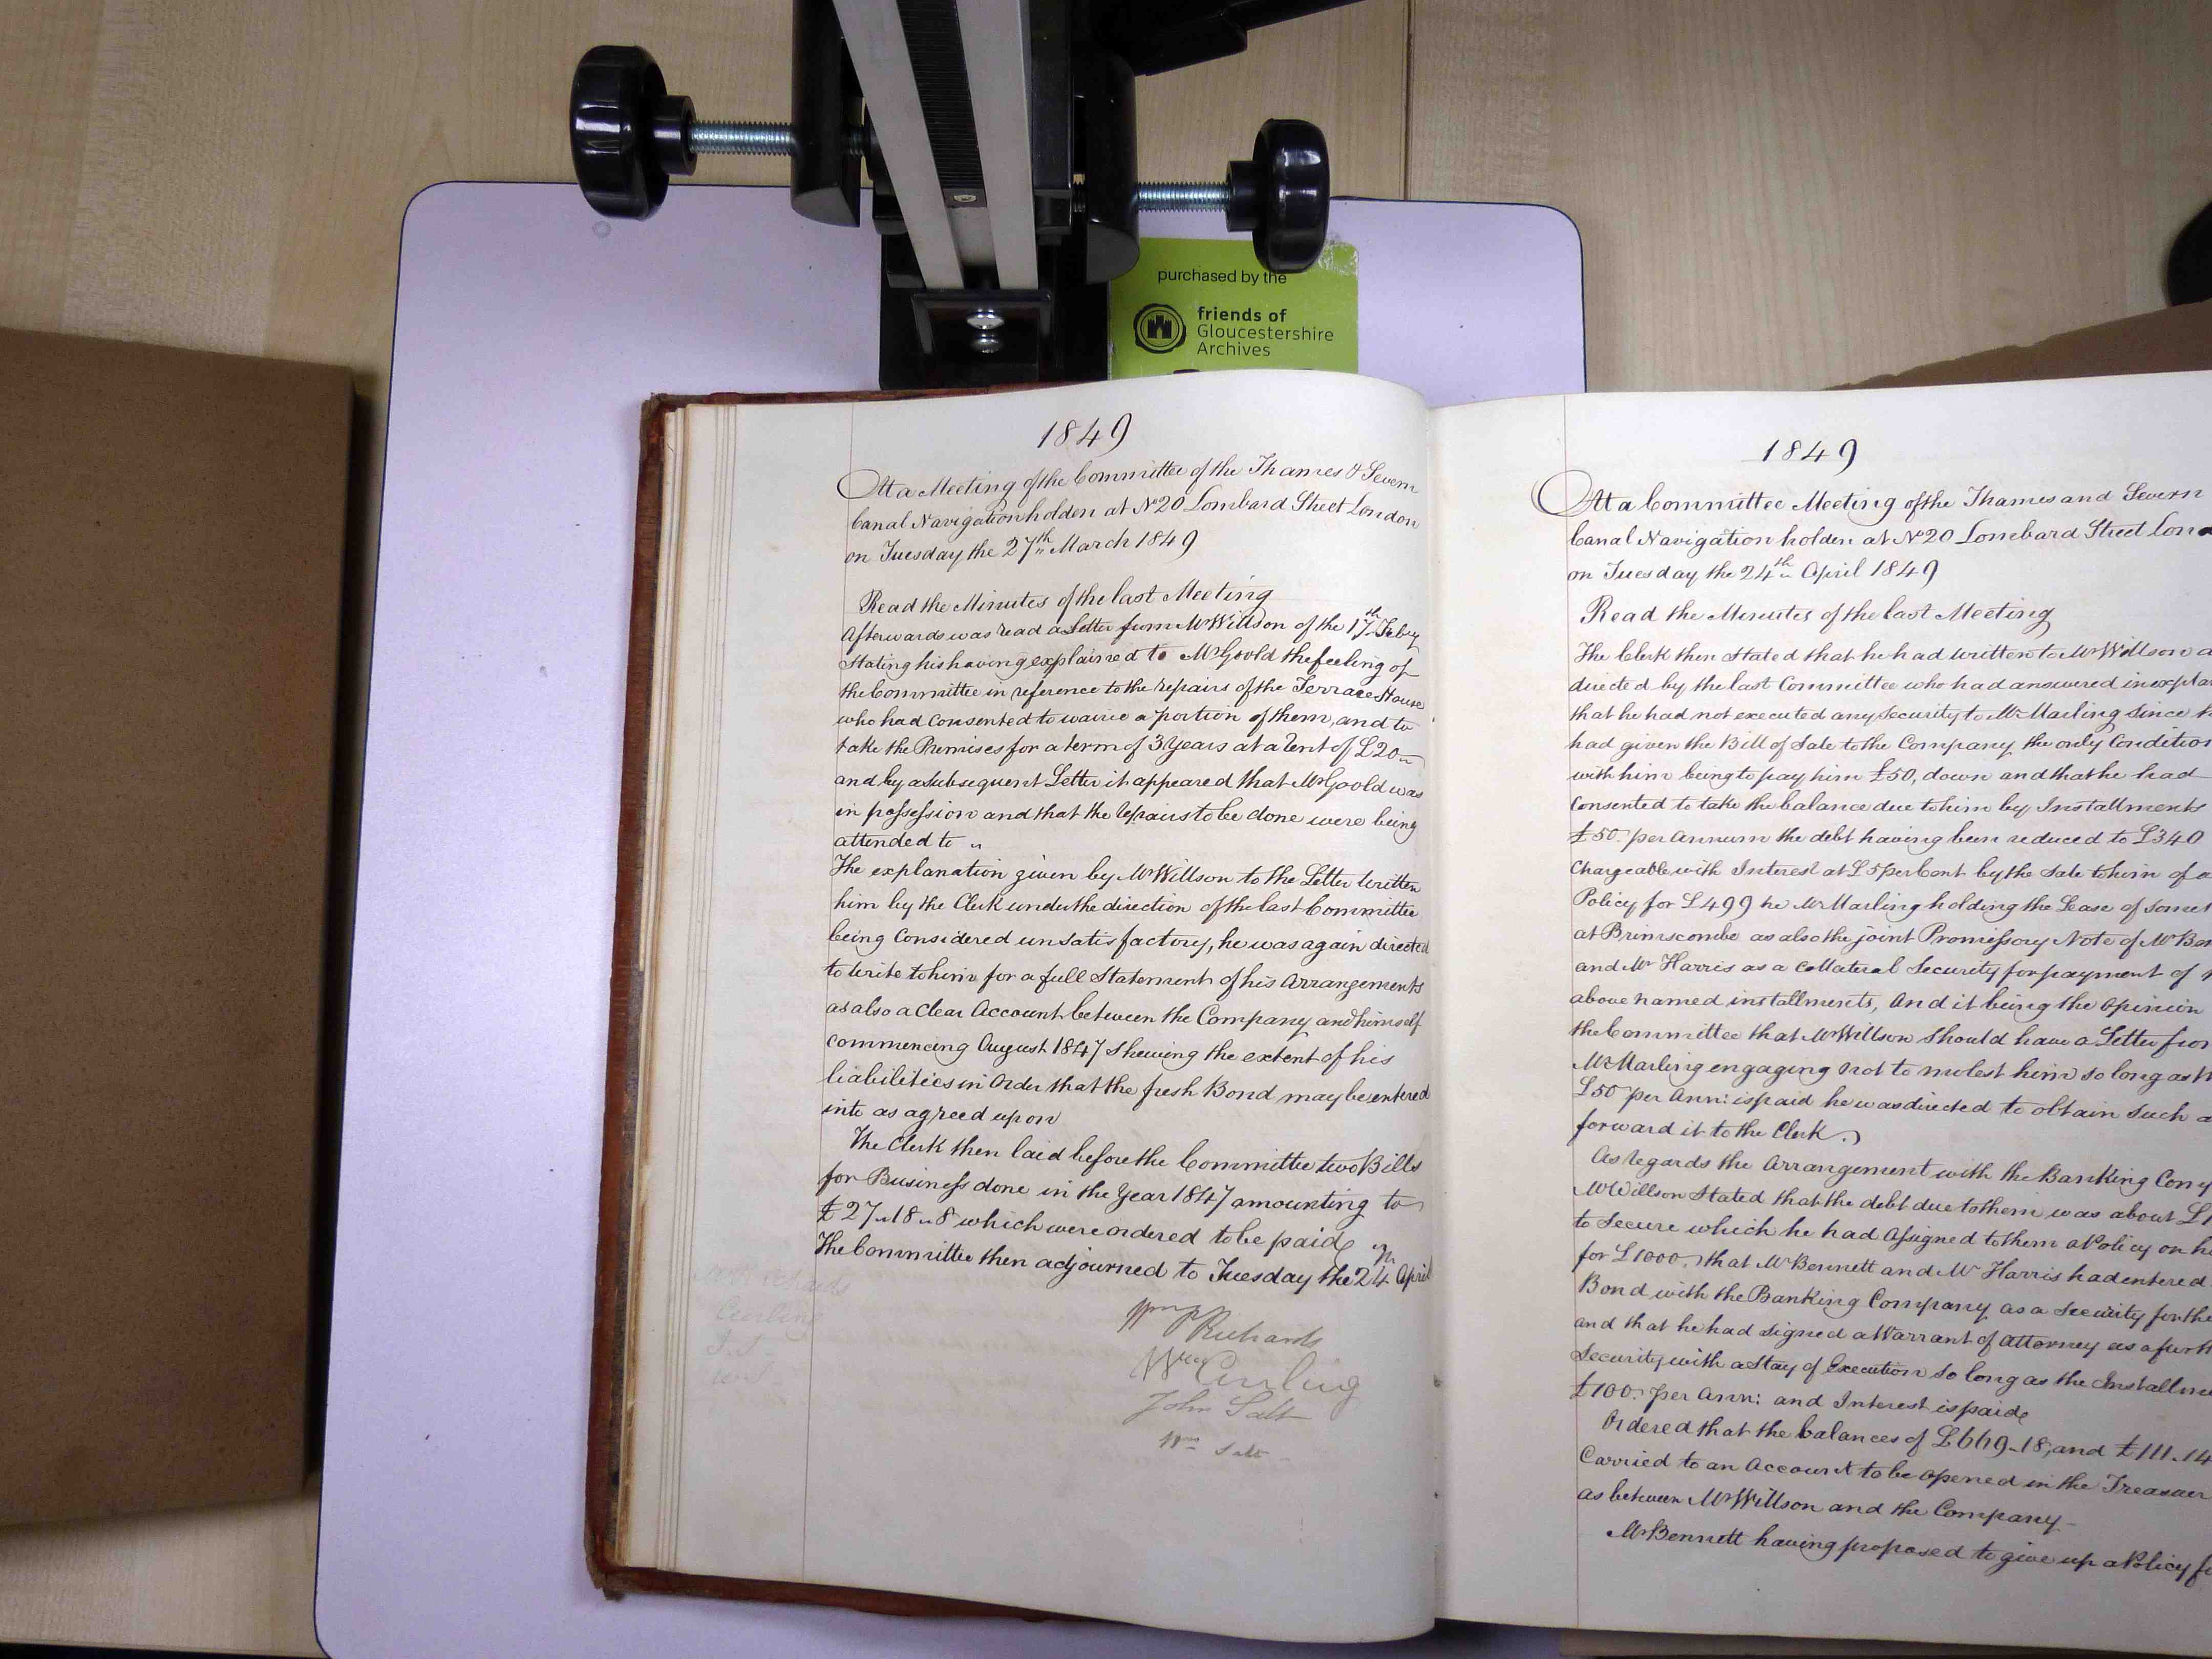 purchased by the
friends of
Gloucestershire
Archives
1849
At a Meeting of the Committee of the Thames & Severn
Canal Navigation holden at No 20 Lombard Street London
on Tuesday the 27th March 1849
Read the Minutes of the last Meeting
Afterwards was read a Letter from Mr Willson of the 17th Feby
stating his having explained to Mr Goold the feeling of
the Committee in reference to the repairs of the Terrace House
who had consented to waive a portion of them, and to
take the Premises for a term of 3 Years at a rent of £20
and by a subsequent Letter it appeared that Mr Goold was
in possession and that the repairs to be done were being
attended to
The explanation given by Mr Willson to the Letter written
him by the Clerk under the direction of the last Committee
being Considered unsatisfactory, he was again directed
to write to him for a full Statement of his Arrangements
as also a Clear Account between the Company and himself
commencing August 1847 shewing the extent of his
liabilities in Order that the fresh Bond may be entered
into as agreed upon
The Clerk then laid before the Committee two Bills
for Business done in the Year 1847 amounting to
£27 " 18 " 8 which were ordered to be paid
The Committee then adjourned to Tuesday the 24th April
Wm P Richards
Wm Curling
John Salt
Wm Salt
Curling
J. S.
W. S.
1849
At a Committee Meeting of the Thames and Severn
Canal Navigation holden at No 20 Lombard Street
on Tuesday the 24th April 1849
Read the Minutes of the last Meeting
The Clerk then stated that he had written to Mr Willson
directed by the last Committee who had answered in
that he had not executed any Security to Mr Marling since
had given the Bill of Sale to the Company, the only Condition
with him being to pay him £50, down and that he had
Consented to take the balance due to him by Installments
£50 per Annum the debt having been reduced to £340
Chargeable with Interest at £5 per Cent by the Sale to him of a
Policy for £499 he Mr Marling holding the Lease of
at Brimscombe as also the joint Promissory Note of Mr
and Mr Harris as a Collateral Security for payment of
above named installments, And it being the Opinion
the Committee that Mr Willson Should have a Letter
Mr Marling engaging not to molest him so long as
£50 per Ann: is paid he was directed to obtain such
forward it to the Clerk.
As regards the Arrangement with the Banking
Mr Willson Stated that the debt due to them was about
to Secure which he had Assigned to them a Policy on
for £1000, that Mr Bennett and Mr Harris had entered
Bond with the Banking Company as a Security for the
and that he had signed a Warrant of Attorney as a
Security with a Stay of Execution so long as the
£100 per Ann: and Interest is paid
Ordered that the balances of £669-18, and £111-14
Carried to an Account to be Opened in the
as between Mr Willson and the Company
Mr Bennett having proposed to give up a Policy